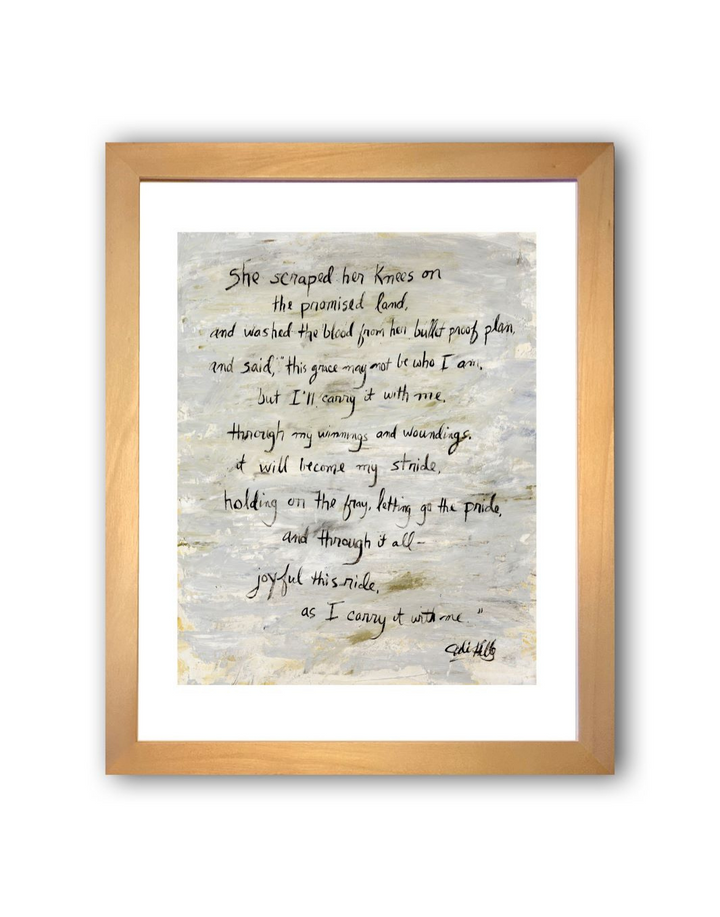 She scraped her Knees on
the promised land,
and washed the blood from her bullet proof plan,
and said, "this grace may not be who I am,
but I'll carry it with me.
through my winnings and woundings.
it will become my stride,
holding on the fray, letting go the pride,
and through it all-
joyful this ride,
as I carry it with me."